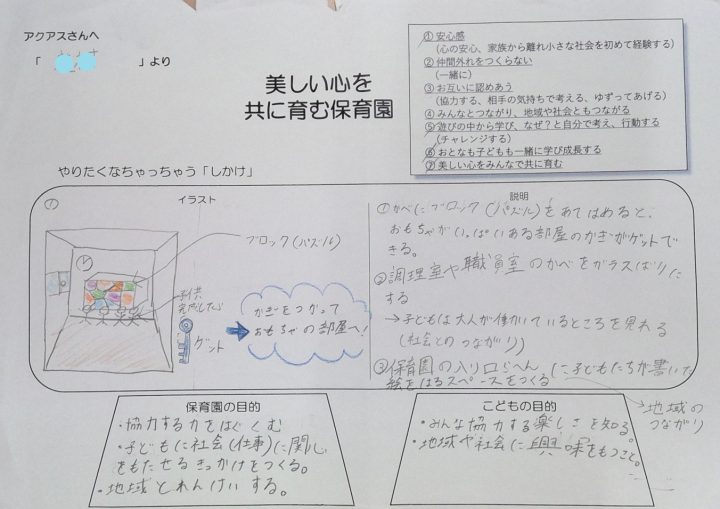 アクアスさんへ
「 」より
美しい心を
共に育む保育園
① 安心感
(心の安心、家族から離れ小さな社会を初めて経験する)
② 仲間外れをつくらない
(一緒に)
③ お互いに認めあう
(協力する、相手の気持ちで考える、ゆずってあげる)
④ みんなとつながり、地域や社会ともつながる
⑤ 遊びの中から学び、なぜ?と自分で考え、行動する
(チャレンジする)
⑥ おとなも子どもも一緒に学び成長する
⑦ 美しい心をみんなで共に育む
やりたくなちゃっちゃう「しかけ」
①
イラスト
ブロック(パズル)
子供
ゲット
かぎをつかって
おもちゃの部屋へ!
説明
①かべにブロック(パズル)をあてはめると、
おもちゃがいっぱいある部屋のかぎがゲットで
きる。
②調理室や職員室のかべをガラスばりに
する
→子どもは大人が働いているところを見れる
(社会とのつながり)
③保育園の入り口らへんに子どもたちが書いた
絵をはるスペースをつくる
→地域の
つながり
保育園の目的
・協力する力をはぐくむ
・子どもに社会(仕事)に関心
をもたせるきっかけをつくる。
・地域とれんけいする。
こどもの目的
・みんな協力する楽しさを知る。
・地域や社会に興味をもつこと。